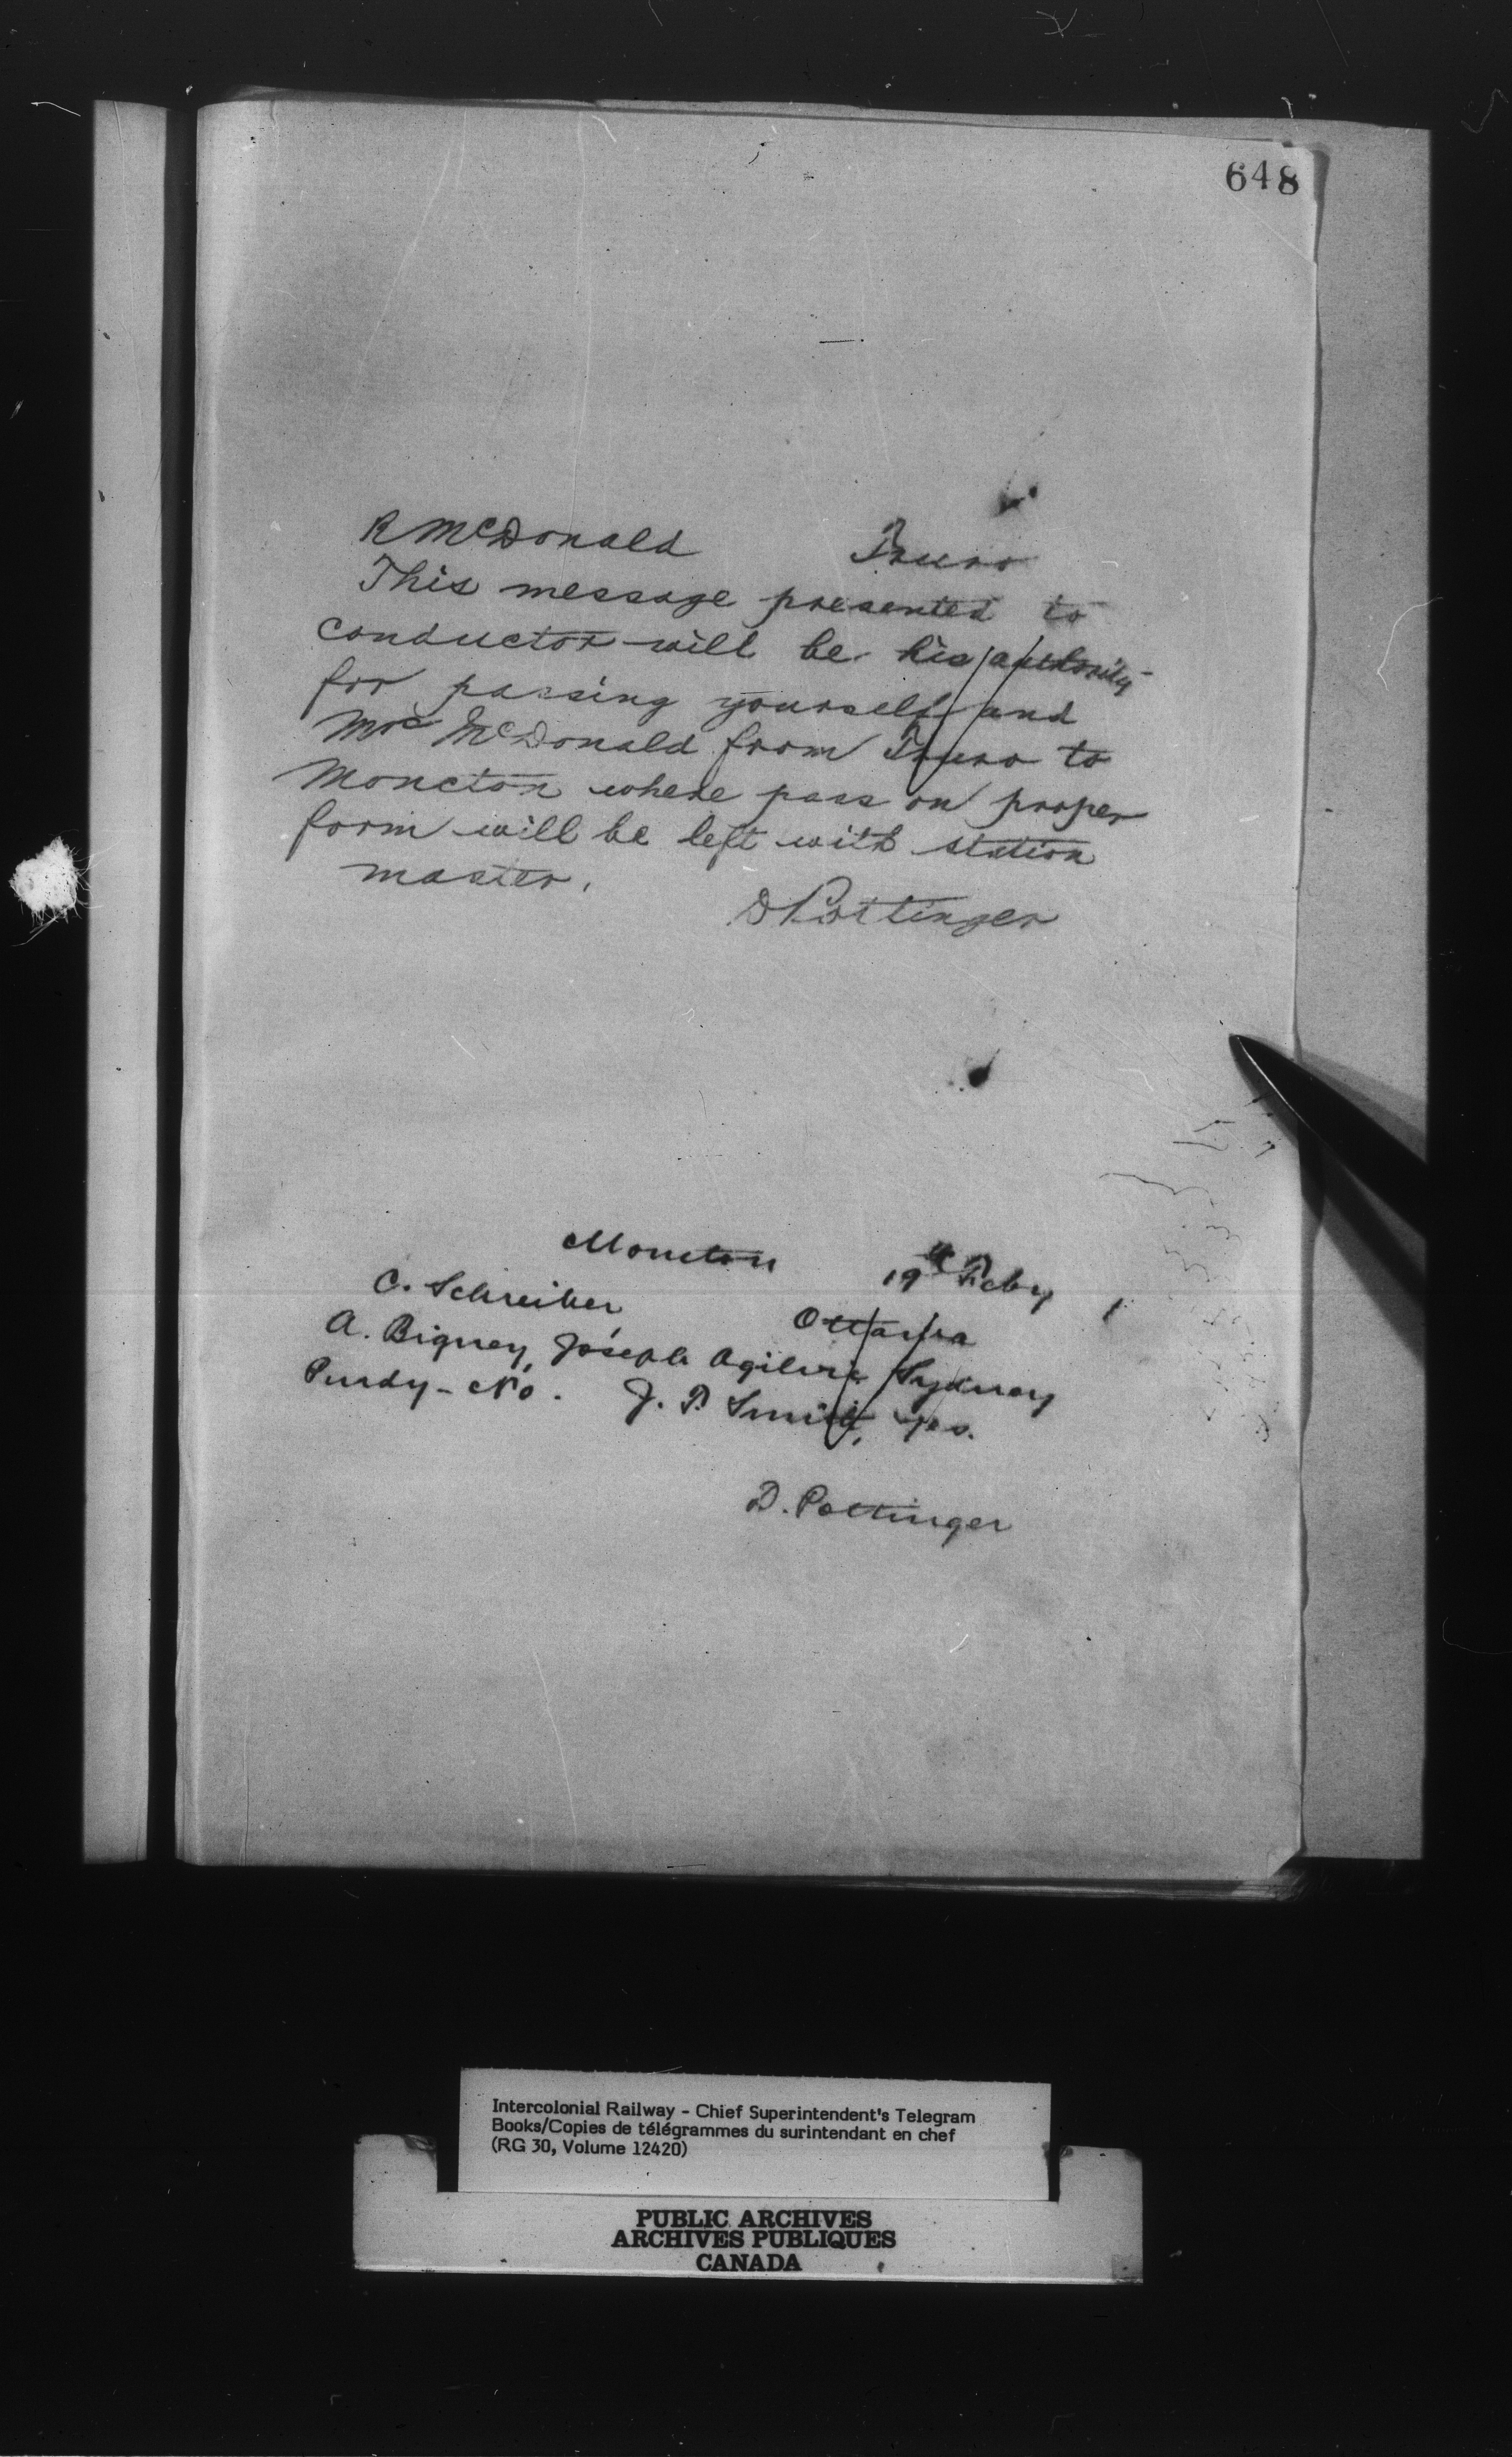 648
R McDonald Truro
This message presented to
conductor will be his authority
for passing yourself and
Mrs McDonald from Truro to
Moncton where pass on proper
form will be left with station
master.
D Pottinger
Moncton 19th Feby
C. Schreiber Ottawa
A. Bigney, Joseph Ogilvie Sydney
Purdy - No. J. P. Smith, Yes.
D. Pottinger
Intercolonial Railway - Chief Superintendent's Telegram
Books/Copies de télégrammes du surintendant en chef
(RG 30, Volume 12420)
PUBLIC ARCHIVES
ARCHIVES PUBLIQUES
CANADA